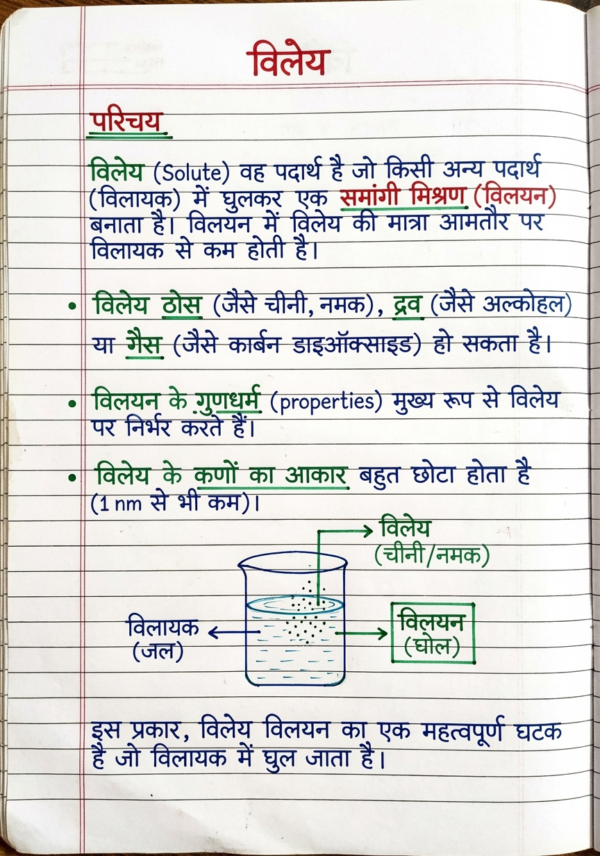 विलेय
परिचय
विलेय (Solute) वह पदार्थ है जो किसी अन्य पदार्थ
(विलायक) में घुलकर एक समांगी मिश्रण (विलयन)
बनाता है। विलयन में विलेय की मात्रा आमतौर पर
विलायक से कम होती है।
• विलेय ठोस (जैसे चीनी, नमक), द्रव (जैसे अल्कोहल)
या गैस (जैसे कार्बन डाइऑक्साइड) हो सकता है।
• विलयन के गुणधर्म (properties) मुख्य रूप से विलेय
पर निर्भर करते हैं।
• विलेय के कणों का आकार बहुत छोटा होता है
(1 nm से भी कम)।
विलेय
(चीनी/नमक)
विलायक
(जल)
विलयन
(घोल)
इस प्रकार, विलेय विलयन का एक महत्वपूर्ण घटक
है जो विलायक में घुल जाता है।